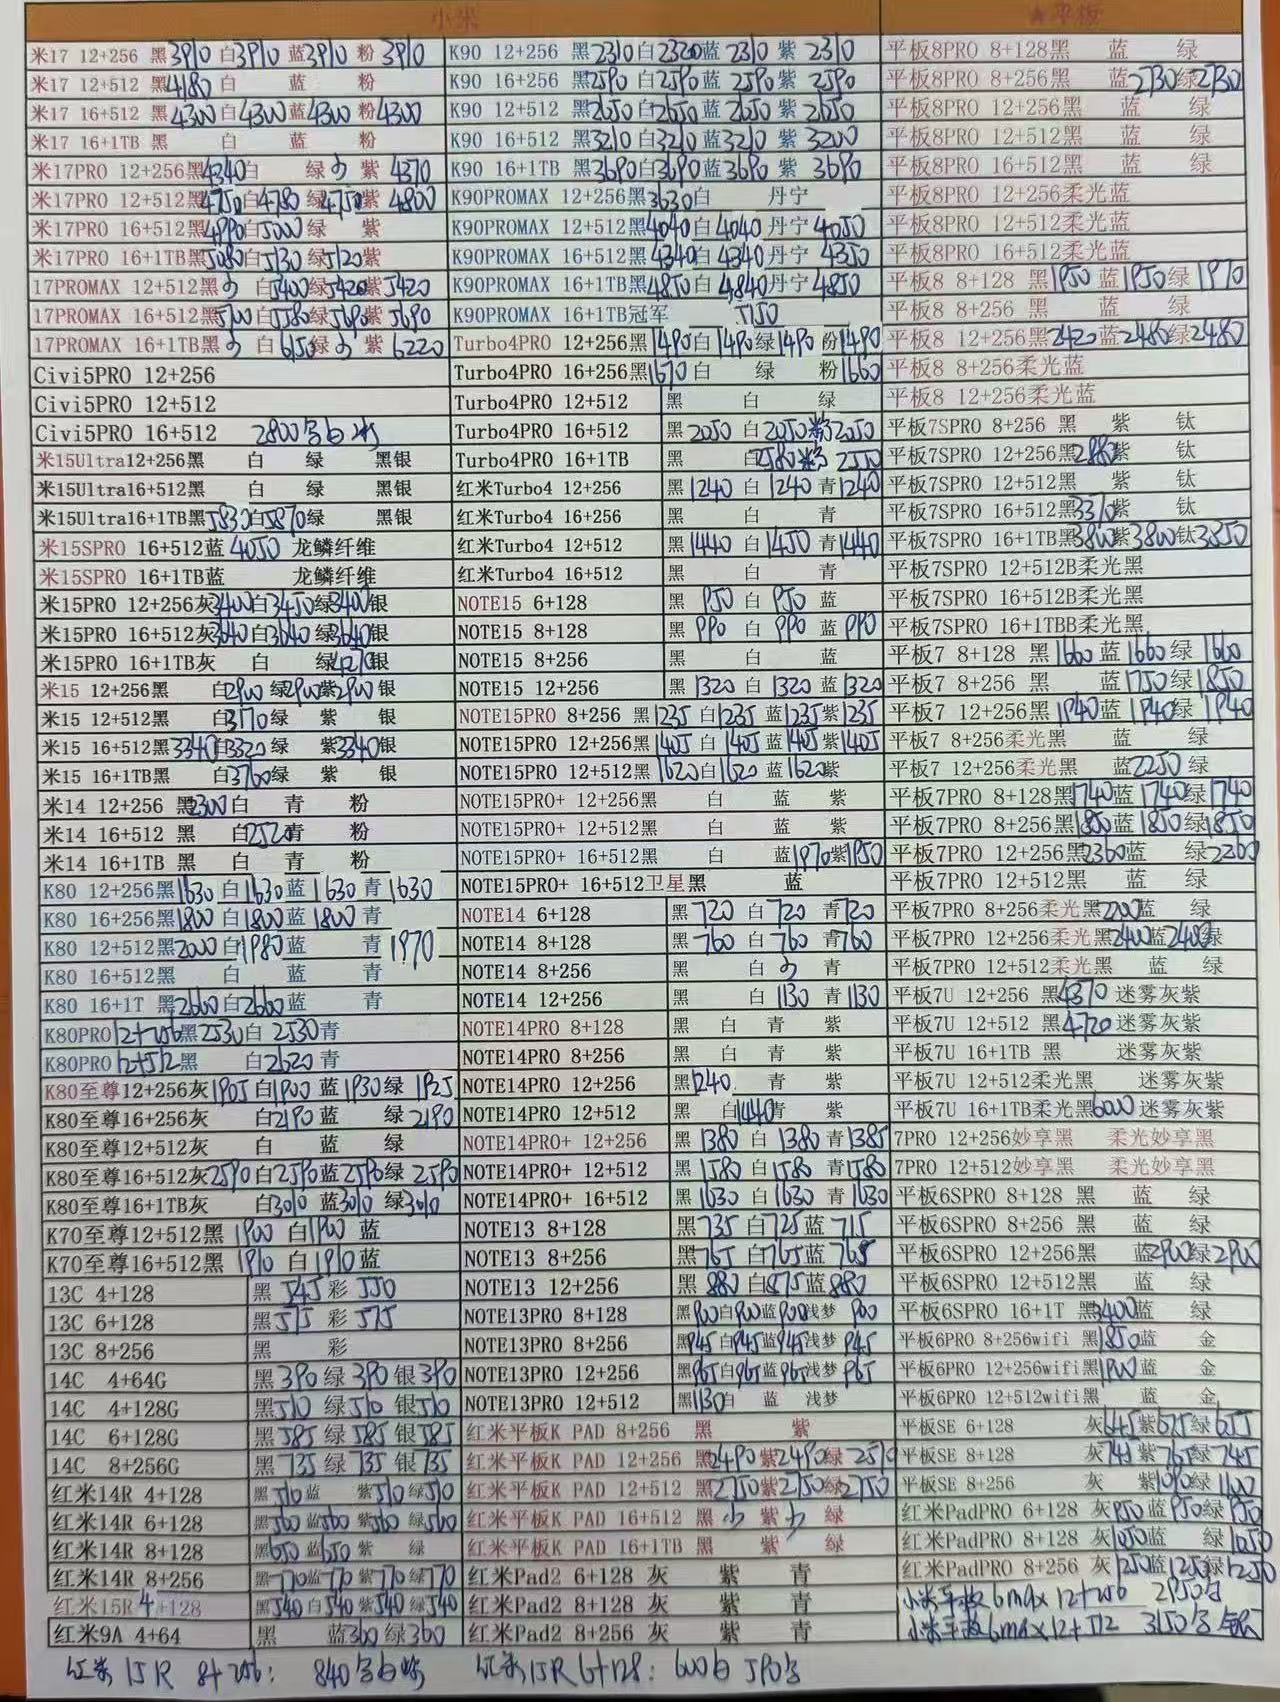 小米
米17 12+256 黑3910 白3910 蓝3910 粉 3910
米17 12+512 黑4180 白 蓝 粉
米17 16+512 黑4300 白4300 蓝4300 粉4300
米17 16+1TB 黑 白 蓝 粉
米17PRO 12+256黑4340白 绿 紫 4370
米17PRO 12+512黑4750白4780 绿4750紫 4800
米17PRO 16+512黑4990白5000 绿 紫
米17PRO 16+1TB黑5080白5130 绿5120紫
17PROMAX 12+512黑 白 5400绿5420紫 5420
17PROMAX 16+512黑 白5580绿5690紫 5690
17PROMAX 16+1TB黑 白6150绿 紫 6220
Civi5PRO 12+256
Civi5PRO 12+512
Civi5PRO 16+512 2800
米15Ultra12+256黑 白 绿 黑银
米15Ultra16+512黑 白 绿 黑银
米15Ultra16+1TB黑5830白5870绿 黑银
米15SPRO 16+512蓝 4050 龙鳞纤维
米15SPRO 16+1TB蓝 龙鳞纤维
米15PRO 12+256灰3400白3450绿3400银
米15PRO 16+512灰3640白3640绿3640银
米15PRO 16+1TB灰 白 绿4270银
米15 12+256黑 白2900 绿2900紫2900 银
米15 12+512黑 白3170绿 紫 银
米15 16+512黑3340白3320 绿 紫3340银
米15 16+1TB黑 白3760绿 紫 银
米14 12+256 黑2300白 青 粉
米14 16+512 黑 白2520青 粉
米14 16+1TB 黑 白 青 粉
K80 12+256黑1630 白1630蓝 1630 青 1630
K80 16+256黑1800 白1800蓝 1800 青
K80 12+512黑2000 白1980蓝 青 1970
K80 16+512黑 白 蓝 青
K80 16+1T 黑2660白2660蓝 青
K80PRO 12+256黑2530白 2530青
K80PRO 12+512黑 白2620青
K80至尊12+256灰1905白1900 蓝 1930绿 1925
K80至尊16+256灰 白2190 蓝 绿 2190
K80至尊12+512灰 白 蓝 绿
K80至尊16+512灰2590白2590蓝2590绿 2590
K80至尊16+1TB灰 白3010 蓝3010 绿3010
K70至尊12+512黑 1900 白1900 蓝
K70至尊16+512黑 1910 白1910 蓝
13C 4+128 黑 545 彩 550
13C 6+128 黑 575 彩 575
13C 8+256 黑 彩
14C 4+64G 黑390 绿 390 银390
14C 4+128G 黑510 绿510 银510
14C 6+128G 黑585 绿585 银585
14C 8+256G 黑735 绿735 银735
红米14R 4+128 黑510蓝 紫510 绿510
红米14R 6+128 黑560 蓝560 紫560 绿560
红米14R 8+128 黑650 蓝650 紫 绿
红米14R 8+256 黑770蓝770 紫770 绿770
红米15R 4+128 黑540 白540 紫540 绿540
红米9A 4+64 黑 蓝360 绿360
K90 12+256 黑2310白2320蓝 2310 紫 2310
K90 16+256 黑2590 白2590蓝 2590 紫 2590
K90 12+512 黑2650 白2650蓝 2650 紫 2650
K90 16+512 黑3210 白3210蓝3210 紫 3200
K90 16+1TB 黑3690白3690蓝3690 紫 3690
K90PROMAX 12+256黑3630白 丹宁
K90PROMAX 12+512黑4040白 4040 丹宁 4050
K90PROMAX 16+512黑4340白 4340 丹宁 4350
K90PROMAX 16+1TB黑4850白 4840丹宁 4850
K90PROMAX 16+1TB冠军 5150
Turbo4PRO 12+256黑1490白1490绿1490 粉1490
Turbo4PRO 16+256黑1670白 绿 粉1660
Turbo4PRO 12+512 黑 白 绿
Turbo4PRO 16+512 黑2050 白2050粉2050
Turbo4PRO 16+1TB 黑 白2580粉 2550
红米Turbo4 12+256 黑1240 白 1240 青1240
红米Turbo4 16+256 黑 白 青
红米Turbo4 12+512 黑1440 白1450 青1440
红米Turbo4 16+512 黑 白 青
NOTE15 6+128 黑 950 白 950 蓝
NOTE15 8+128 黑 990 白 990 蓝 990
NOTE15 8+256 黑 白 蓝
NOTE15 12+256 黑1320 白 1320 蓝1320
NOTE15PRO 8+256 黑1235 白1235 蓝1235紫1235
NOTE15PRO 12+256黑1405 白1405 蓝1405紫1405
NOTE15PRO 12+512黑1620白1620 蓝1620紫
NOTE15PRO+ 12+256黑 白 蓝 紫
NOTE15PRO+ 12+512黑 白 蓝 紫
NOTE15PRO+ 16+512黑 白 蓝1970紫1950
NOTE15PRO+ 16+512卫星黑 蓝
NOTE14 6+128 黑720 白720 青720
NOTE14 8+128 黑760 白760 青760
NOTE14 8+256 黑 白 青
NOTE14 12+256 黑 白 1130 青1130
NOTE14PRO 8+128 黑 白 青 紫
NOTE14PRO 8+256 黑 白 青 紫
NOTE14PRO 12+256 黑1240 青 紫
NOTE14PRO 12+512 黑 白1440青 紫
NOTE14PRO+ 12+256 黑1380 白 1380 青1385
NOTE14PRO+ 12+512 黑1580 白1580 青1580
NOTE14PRO+ 16+512 黑1630 白1630 青1630
NOTE13 8+128 黑735 白725蓝 715
NOTE13 8+256 黑765 白765蓝 765
NOTE13 12+256 黑 880 白875蓝880
NOTE13PRO 8+128 黑900白900蓝900浅梦 900
NOTE13PRO 8+256 黑945白945蓝945浅梦 945
NOTE13PRO 12+256 黑965白965蓝965浅梦 965
NOTE13PRO 12+512 黑1130白 蓝 浅梦
红米平板K PAD 8+256 黑 紫
红米平板K PAD 12+256 黑2490紫2490绿 2510
红米平板K PAD 12+512 黑2750紫2750绿2750
红米平板K PAD 16+512 黑 紫 绿
红米平板K PAD 16+1TB 黑 紫 绿
红米Pad2 6+128 灰 紫 青
红米Pad2 8+128 灰 紫 青
红米Pad2 8+256 灰 紫 青
★平板
平板8PRO 8+128黑 蓝 绿
平板8PRO 8+256黑 蓝2730绿2730
平板8PRO 12+256黑 蓝 绿
平板8PRO 12+512黑 蓝 绿
平板8PRO 16+512黑 蓝 绿
平板8PRO 12+256柔光蓝
平板8PRO 12+512柔光蓝
平板8PRO 16+512柔光蓝
平板8 8+128 黑1950 蓝1950绿 1970
平板8 8+256 黑 蓝 绿
平板8 12+256黑2420蓝2480绿2480
平板8 8+256柔光蓝
平板8 12+256柔光蓝
平板7SPRO 8+256 黑 紫 钛
平板7SPRO 12+256黑2880紫 钛
平板7SPRO 12+512黑 紫 钛
平板7SPRO 16+512黑3370紫 钛
平板7SPRO 16+1TB黑3800紫3800钛3850
平板7SPRO 12+512B柔光黑
平板7SPRO 16+512B柔光黑
平板7SPRO 16+1TBB柔光黑
平板7 8+128 黑1660 蓝1660 绿 1660
平板7 8+256 黑 蓝1750 绿1850
平板7 12+256黑1940蓝1940绿1940
平板7 8+256柔光黑 蓝 绿
平板7 12+256柔光黑 蓝2250 绿
平板7PRO 8+128黑1740蓝1740绿1740
平板7PRO 8+256黑1850蓝1850绿1850
平板7PRO 12+256黑2360蓝 绿2360
平板7PRO 12+512黑 蓝 绿
平板7PRO 8+256柔光黑2200蓝 绿
平板7PRO 12+256柔光黑2400蓝2480绿
平板7PRO 12+512柔光黑 蓝 绿
平板7U 12+256 黑4370 迷雾灰紫
平板7U 12+512 黑4720 迷雾灰紫
平板7U 16+1TB 黑 迷雾灰紫
平板7U 12+512柔光黑 迷雾灰紫
平板7U 16+1TB柔光黑6000 迷雾灰紫
7PRO 12+256妙享黑 柔光妙享黑
7PRO 12+512妙享黑 柔光妙享黑
平板6SPRO 8+128 黑 蓝 绿
平板6SPRO 8+256 黑 蓝 绿
平板6SPRO 12+256黑 蓝2900绿2900
平板6SPRO 12+512黑 蓝 绿
平板6SPRO 16+1T 黑3400蓝 绿
平板6PRO 8+256wifi 黑1850蓝 金
平板6PRO 12+256wifi黑1900蓝 金
平板6PRO 12+512wifi黑 蓝 金
平板SE 6+128 灰645紫675绿655
平板SE 8+128 灰745 紫765绿745
平板SE 8+256 灰 紫1090绿1100
红米PadPRO 6+128 灰950蓝950绿950
红米PadPRO 8+128 灰1050蓝 绿1050
红米PadPRO 8+256 灰1250蓝1250绿1250
小米平板6max 12+256 2950
小米平板6max 12+512 3150
红米15R 8+256: 840
红米15R 6+128: 600白 590